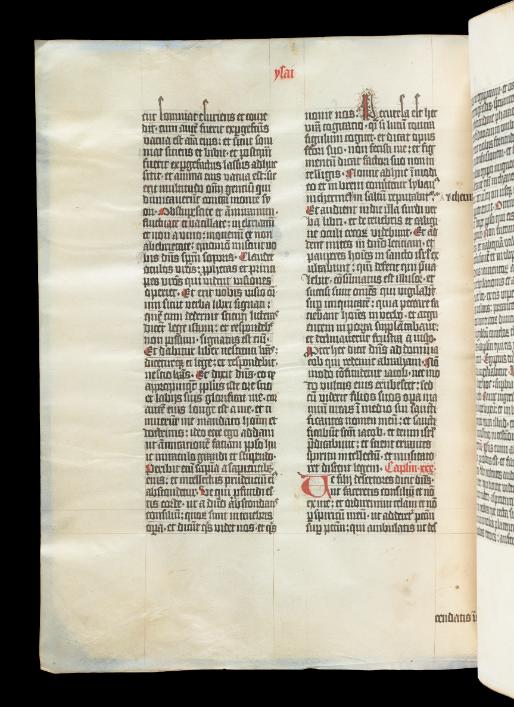 ysai
cut somniat esuriens et come
dit. cum autē fuerit expgefactus
vacua est aīa eius: et sicut som
niat siciens et bibit. et postqm̄
fuerit expgefactus lassus adhuc
sitit. et anima eius vacua est: sic
erit multitudo omī gentiū qui
dimicauerūt contra montē sy
on. Obstupescite et admiramini.
fluctuate et vacillate: inebriamī
et non a vino: mouemī et non
ab ebrietate: quoniam miscuit vo
bis dn̄s spm̄ soporis. Claudet
oculos vr̄os: pphetas et prin
pes vr̄os qui vident visiones
operiet. Et erit vobis visio oīm
sicut verba libri signati:
quē cum dederint scienti litteras
dicēt lege istum: et respondebit
non possum. signatus est eni.
Et dabitur liber nescienti
diceturq; ei lege: et respondebit.
nescio lrās. Et dixit dn̄s. eo q
appropinquat ppl's iste ore suo
et labijs suis glorificat me. cor
autē eius longe est a me. et ti
muerūt me mandato hoīm et
doctrinis: ideo ecce ego addam
ut admirationē faciam pplo hu
ic miraculo grandi et stupendo.
Peribit eni sapīa a sapientib;
eius: et intellectus prudentiū ei
abscondetur. Ve qui pfundi es
tis corde. ut a dn̄o abscondatis
consiliū: quorū sunt in tenebris
opa. et dicūt qs videt nos. et qs
nouit nos. Peruersa est hec
vrā cogitatio. qi si lutū contra
figulum cogitet. et dicat opus
fcōri suo. non fecisti me: et fig
mentū dicat factori suo non in
telligis. Nonne adhuc in modi
co et in breui conuertetur lyban'
in chermel
et chermel in saltū reputabitur.
Et audient in die illa surdi ver
ba libri. et de tenebris et caligi
ne oculi cecorū videbunt. Et ad
dent mites in dn̄o leticiam. et
pauperes hoīes in sancto isrl ex
ultabunt: qm̄ defecit qui pua
lebat. cōsummatus est illusor. et
succisi sunt omnes qui vigilabāt
sup iniquitatē: qui peccare fa
ciebant hoīes in verbo. et argu
entem in porta supplātabant:
et declinauerūt frustra a iusto.
Propter hoc hec dicit dn̄s ad domū ia
cob qui redemit abraham. Nō
modo cōfundetur iacob. nec mo
do vultus eius erubescet: sed
cū viderit filios suos opa ma
nuū mearū ī medio sui sancti
ficantes nomen meū: et sancti
ficabūt scm̄ iacob. et deum isrl
pdicabunt: et scient errantes
spiritu intellectū. et musitato
res discent legem. Caplm .xxx.
Ve filij desertores dicit dn̄s:
ut faceretis consiliū et nō
ex me: et ordiremini telam et nō
p spiritum meū. ut adderet pctm
sup pctm: qui ambulatis ut des
cendatis ī